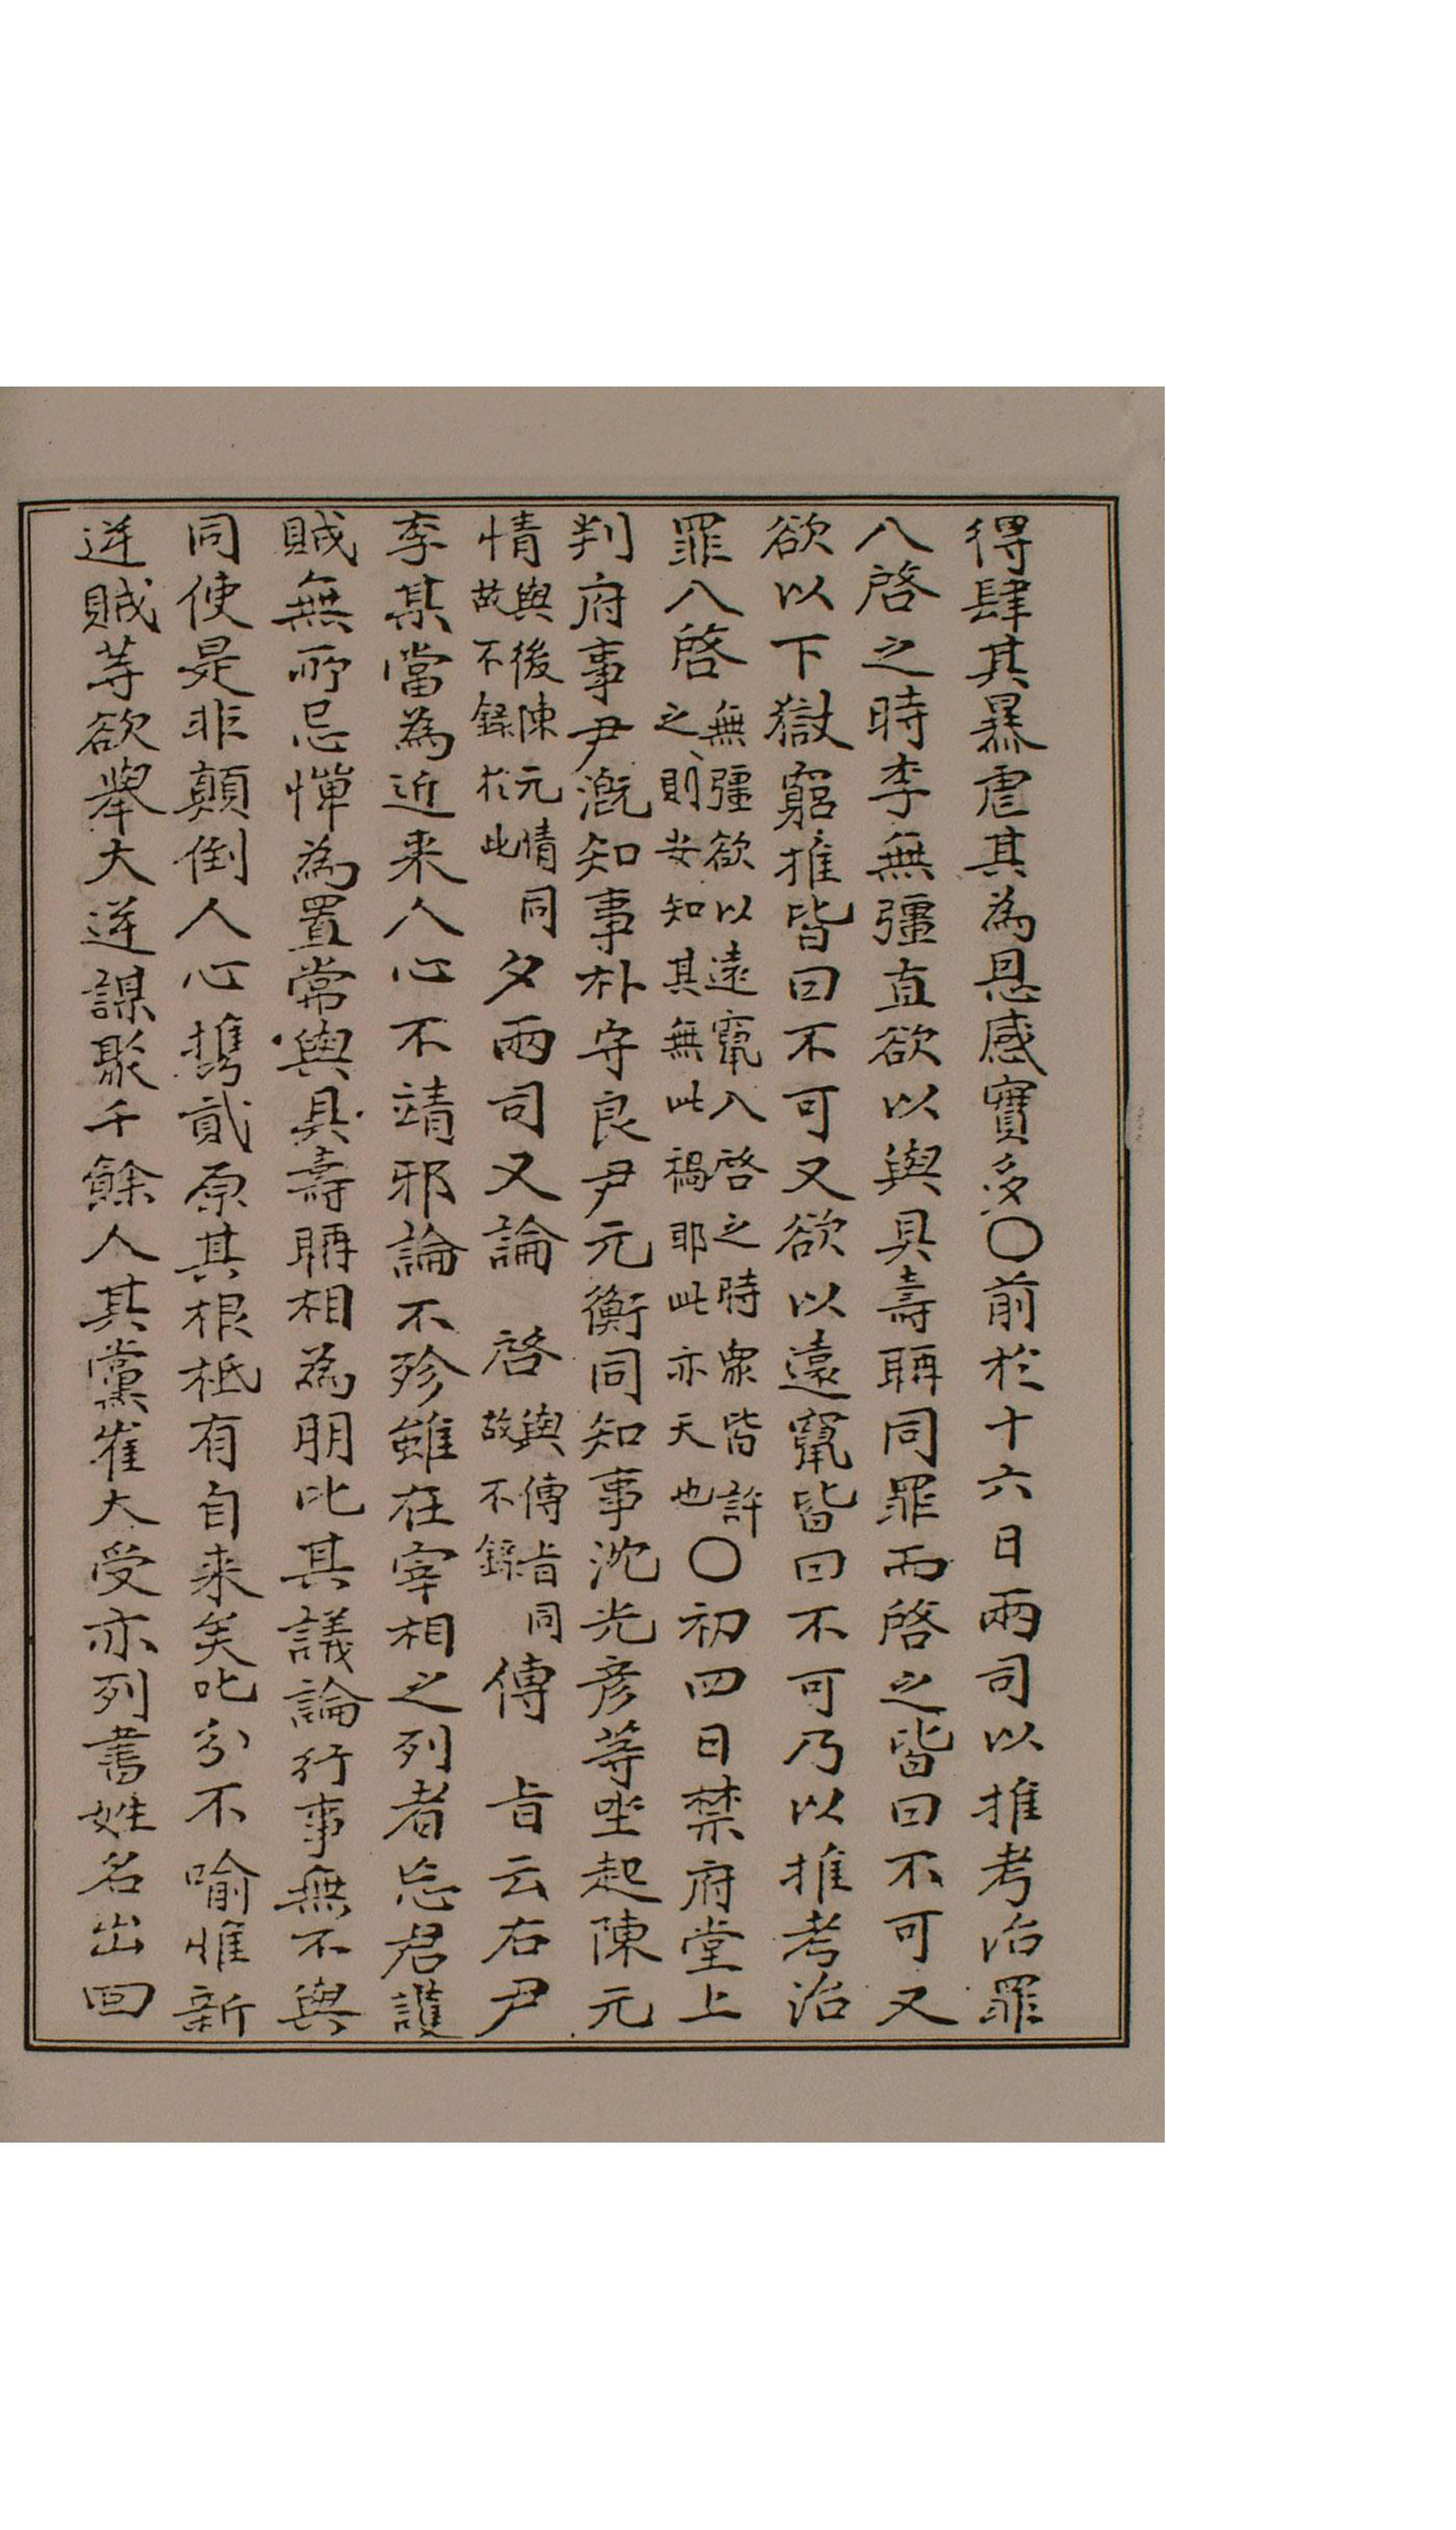 得肆其暴虐其為恩感實多〇前於十六日兩司以推考治罪
入啓之時李無彊直欲以與具壽聃同罪而啓之皆曰不可又
欲以下獄窮推皆曰不可又欲以遠竄皆曰不可乃以推考治
罪入啓無彊欲以遠竄入啓之時衆皆許之則安知其無此禍耶此亦天也〇初四日禁府堂上
判府事尹漑知事朴守良尹元衡同知事沈光彦等坐起陳元
情與後陳元情同故不録於此夕兩司又論 啓與傳旨同故不錄傳 旨云右尹
李某當為近来人心不靖邪論不殄雖在宰相之列者忘君護
賊無所忌憚為置常與具壽聃相為朋比其議論行事無不與
同使是非顛倒人心携貳原其根柢有自来矣叱分不喻惟新
逆賊等欲擧大逆謀聚千餘人其黨崔大受亦列書姓名出回